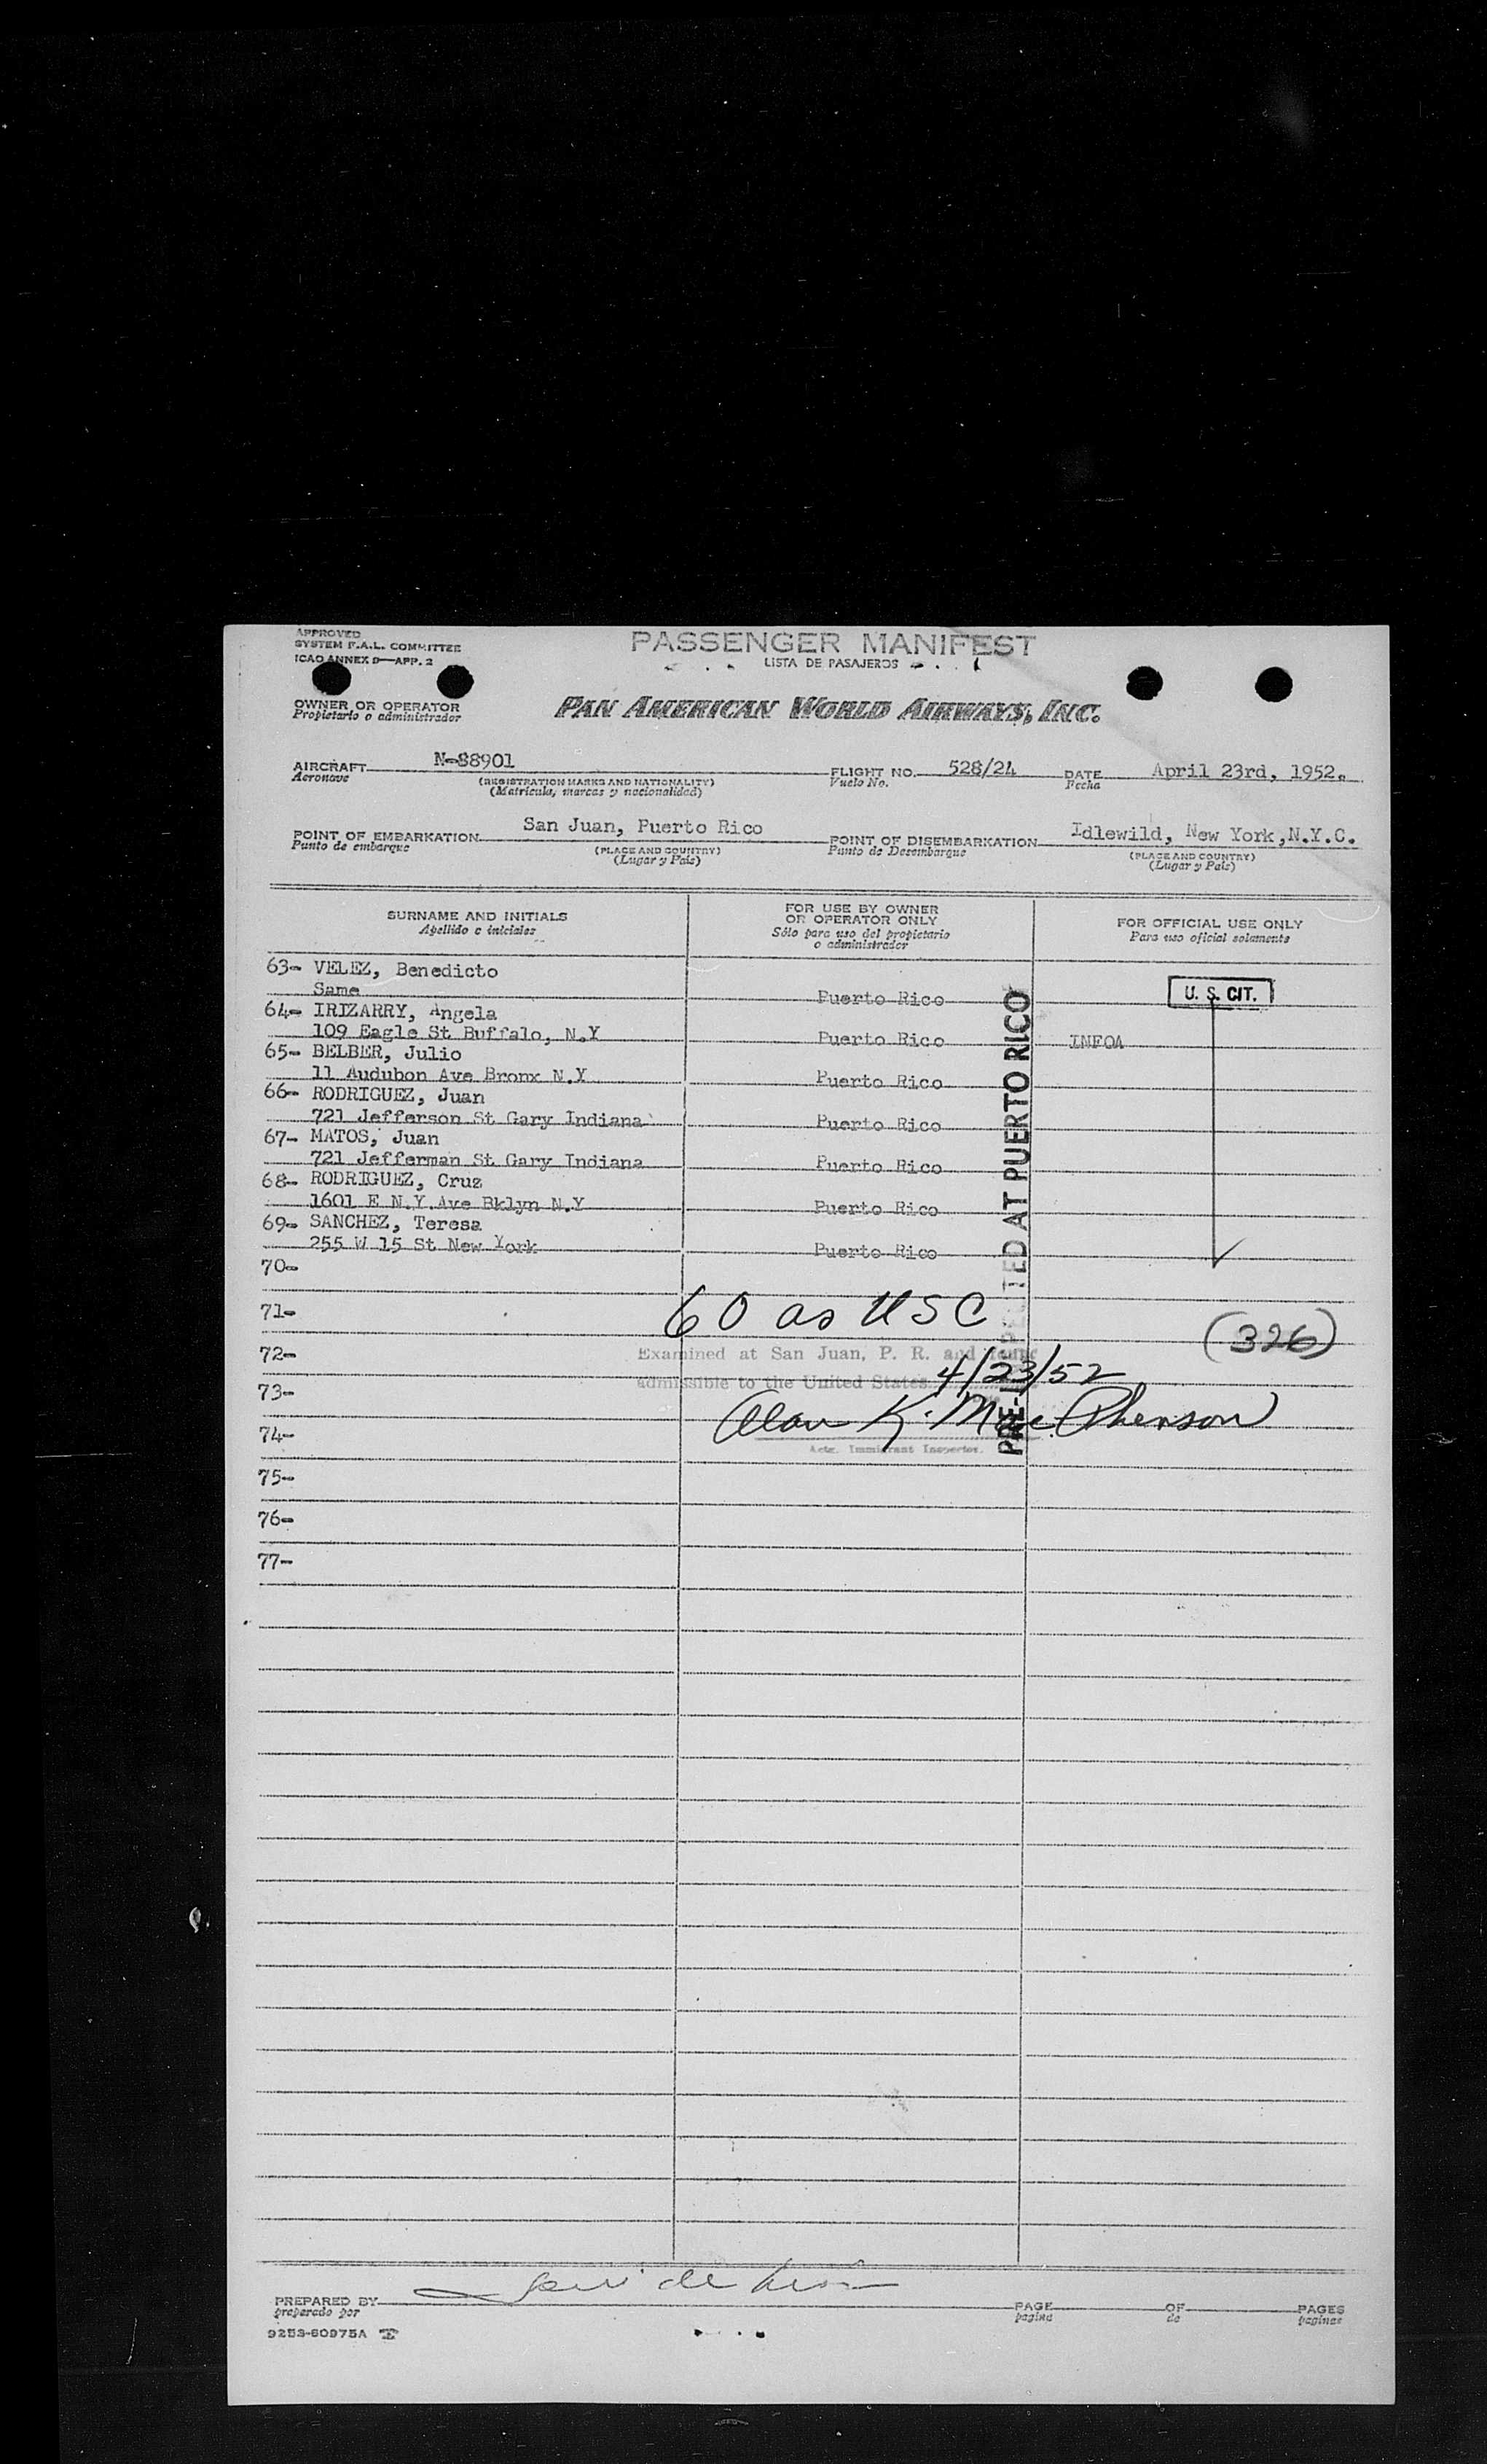 APPROVED
SYSTEM F.A.L. COMMITTEE
ICAO ANNEX 9—APP. 2
PASSENGER MANIFEST
LISTA DE PASAJEROS
OWNER OR OPERATOR
Propietario o administrador
PAN AMERICAN WORLD AIRWAYS, INC.
AIRCRAFT N-88901 FLIGHT NO. 528/24 DATE April 23rd, 1952.
Aeronave (REGISTRATION MARKS AND NATIONALITY) Vuelo No. Fecha
(Matricula, marcas y nacionalidad)
POINT OF EMBARKATION San Juan, Puerto Rico POINT OF DISEMBARKATION Idlewild, New York,N.Y.C.
Punto de embarque (PLACE AND COUNTRY) Punto de Desembarque (PLACE AND COUNTRY)
(Lugar y País) (Lugar y País)
SURNAME AND INITIALS
Apellido e iniciales
FOR USE BY OWNER
OR OPERATOR ONLY
Sólo para uso del propietario
o administrador
FOR OFFICIAL USE ONLY
Para uso oficial solamente
63- VELEZ, Benedicto
Same Puerto Rico U. S. CIT.
64- IRIZARRY, Angela
109 Eagle St Buffalo, N.Y Puerto Rico
65- BELBER, Julio
11 Audubon Ave Bronx N.Y Puerto Rico
66- RODRIGUEZ, Juan
721 Jefferson St Gary Indiana Puerto Rico
67- MATOS, Juan
721 Jefferman St Gary Indiana Puerto Rico
68- RODRIGUEZ, Cruz
1601 E N.Y.Ave Bklyn N.Y Puerto Rico
69- SANCHEZ, Teresa
255 W 15 St New York Puerto Rico
70-
71- 60 as USC
(326)
72- Examined at San Juan, P. R. and found
admissible to the United States 4/23/52
73-
Alan K. MacPherson
74-
Actg. Immigrant Inspector.
75-
76-
77-
AT PUERTO RICO
PREPARED BY PAGE OF PAGES
preparado por pagina de paginas
9253-60975A